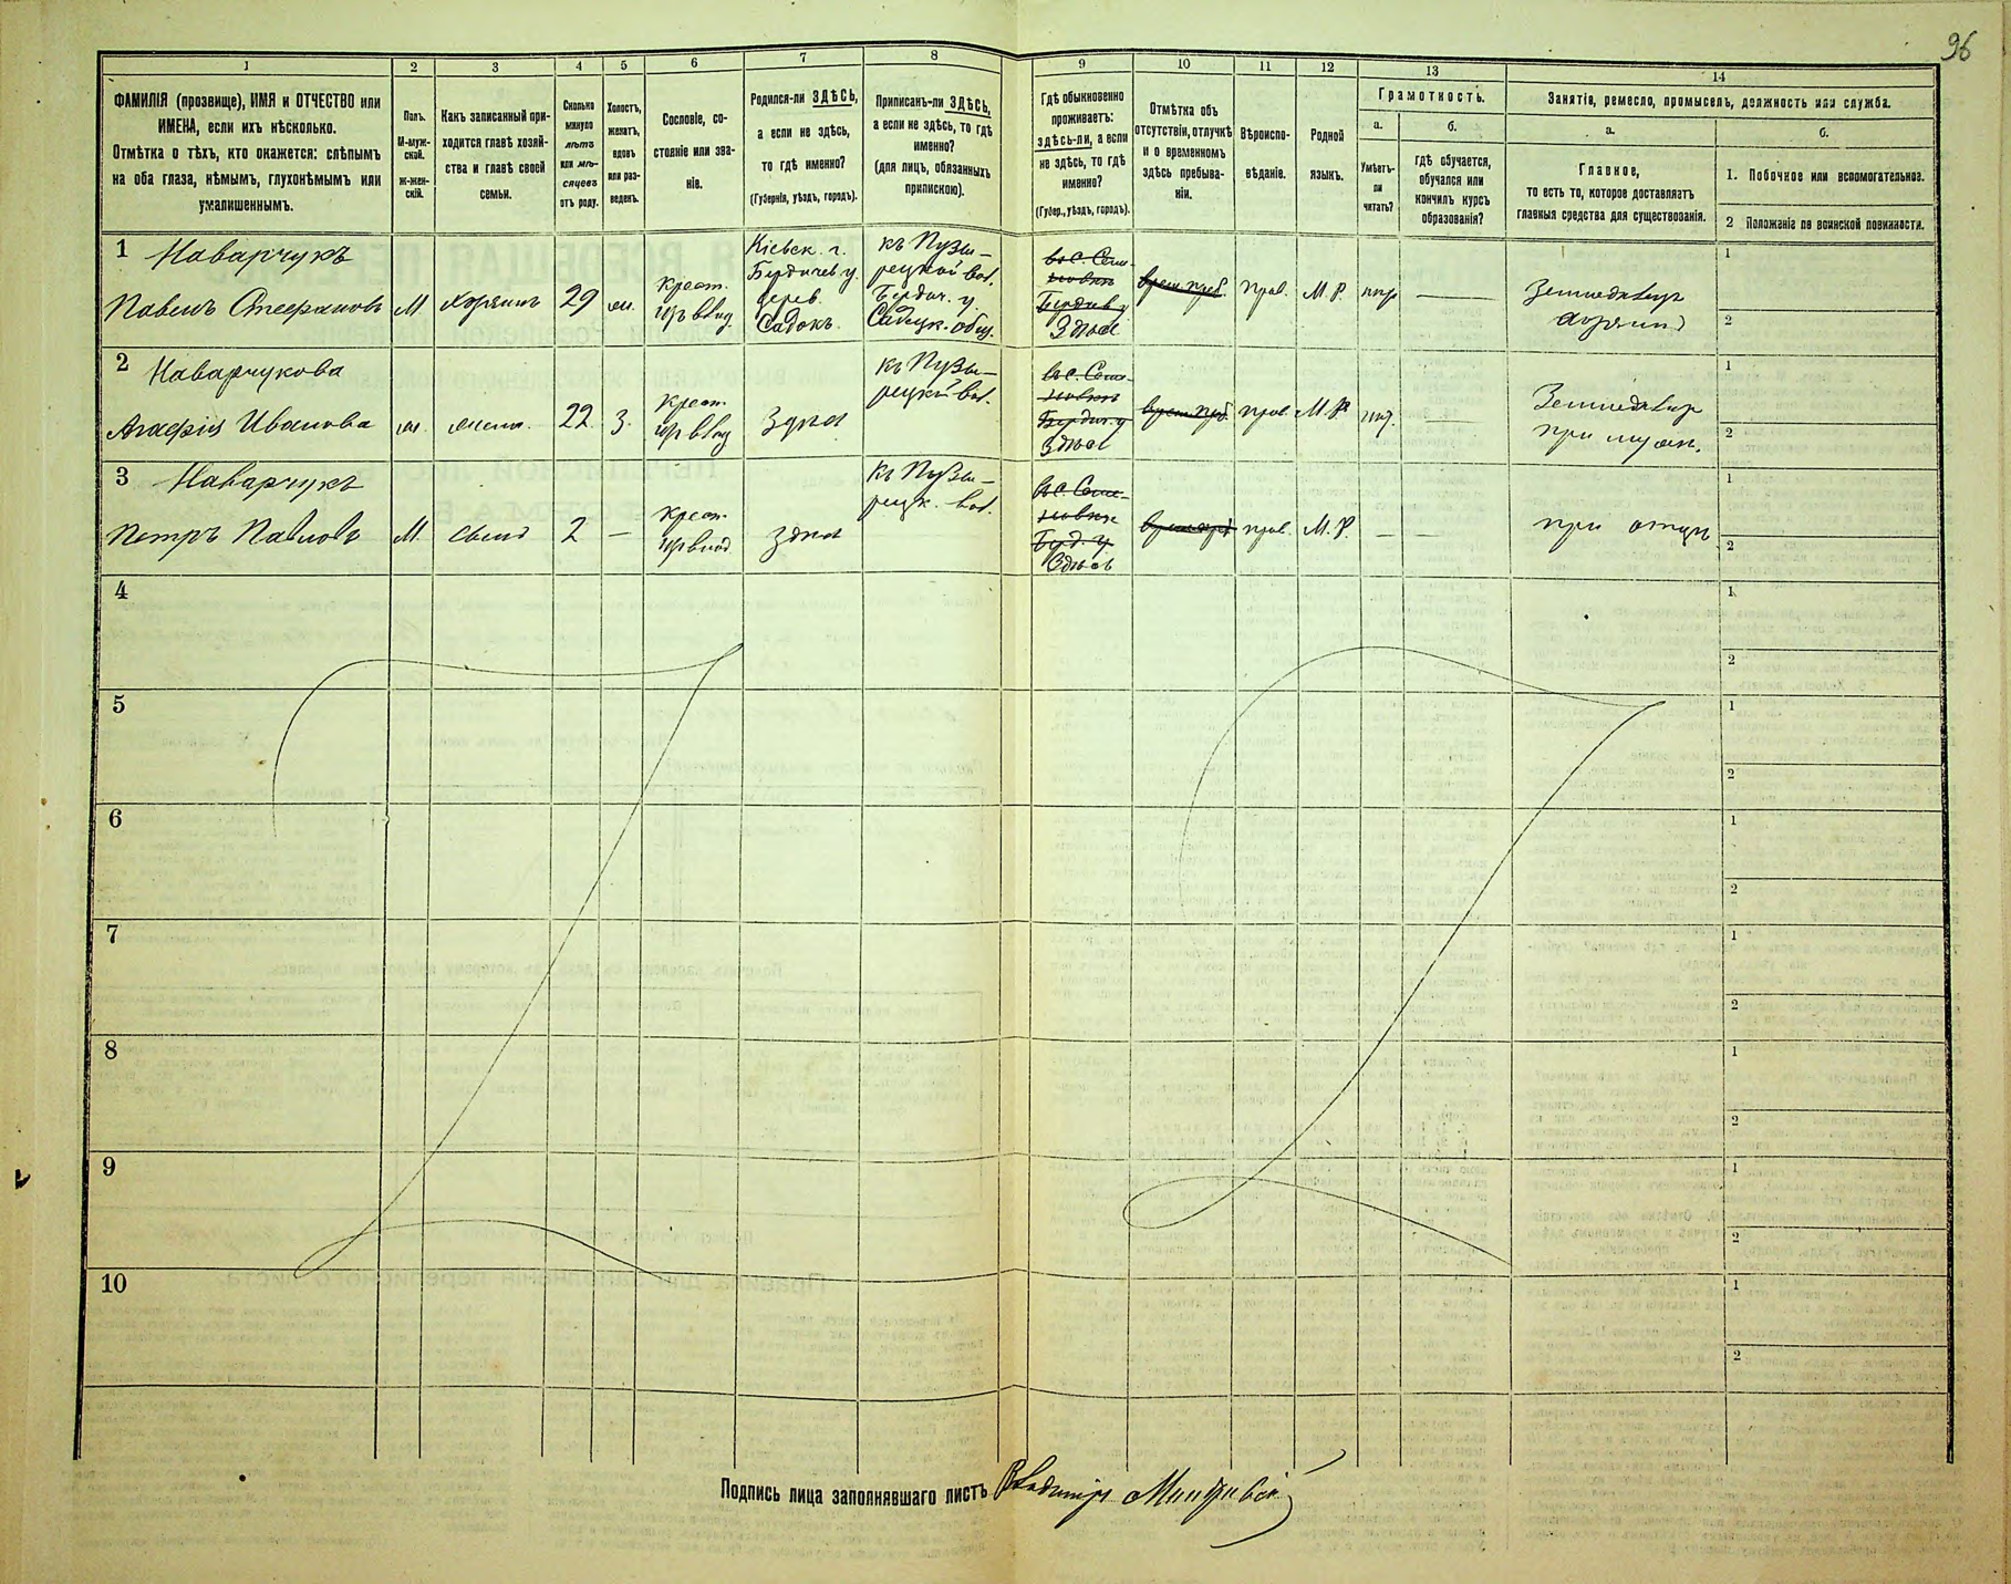 96
1
2
3
4
5
6
7
8
9
10
11
12
13
14
ФАМИЛІЯ (прозвище), ИМЯ и ОТЧЕСТВО или
ИМЕНА, если ихъ нѣсколько.
Отмѣтка о тѣхъ, кто окажется: слѣпымъ
на оба глаза, нѣмымъ, глухонѣмымъ или
умалишеннымъ.
Полъ.
М-муж-
ской.
ж-жен-
скій.
Какъ записанный при-
ходится главѣ хозяй-
ства и главѣ своей
семьи.
Сколько
минуло
лѣтъ
или мѣ-
сяцевъ
отъ роду.
Холостъ,
женатъ,
вдовъ
или раз-
веденъ.
Сословіе, со-
стояніе или зва-
ніе.
Родился-ли ЗДѢСЬ,
а если не здѣсь,
то гдѣ именно?
(Губернія, уѣздъ, городъ).
Приписанъ-ли ЗДѢСЬ,
а если не здѣсь, то гдѣ
именно?
(для лицъ, обязанныхъ
припискою).
Гдѣ обыкновенно
проживаетъ:
здѣсь-ли, а если
не здѣсь, то гдѣ
именно?
(Губер., уѣздъ, городъ).
Отмѣтка объ
отсутствіи, отлучкѣ
и о временномъ
здѣсь пребыва-
ніи.
Вѣроиспо-
вѣданіе.
Родной
языкъ.
Грамотность.
а.
Умѣетъ-
ли
читать?
б.
гдѣ обучается,
обучался или
кончилъ курсъ
образованія?
Занятіе, ремесло, промыселъ, должность или служба.
а.
Главное,
то есть то, которое доставляетъ
главныя средства для существованія.
б.
1. Побочное или вспомогательное.
2 Положеніе по воинской повинности.
1 Наварчукъ
Павелъ Стефановъ
М.
хозяинъ
29
жн.
крест.
Кіевск. г.
Бердичев у.
дерев.
Садокъ.
къ Пузы-
рецкой вол.
Бердич. у.
Садецк. общ.
въ с. Семе-
Бердич у
Здѣсь
врем. преб.
прав.
М. Р.
Земледѣлец
хозяинъ
1
2
2 Наварчукова
Агафія Иванова
жена.
22
З.
крест.
Здѣсь
къ Пузы-
рецкой вол.
въ с. Семе-
Бердич. у
Здѣсь
врем. преб
прав.
М. Р.
Земледѣлец
при мужѣ.
1
2
3 Наварчукъ
Петръ Павловъ
М.
сынъ
2
—
крест.
Здѣсь
къ Пузы-
рецк. вол.
въ с. Семе-
Берд. у.
Здѣсь
врем. преб
прав.
М. Р.
—
—
при отцѣ
1
2
4
1
2
5
1
2
6
1
2
7
1
2
8
1
2
9
1
2
10
1
2
Подпись лица заполнявшаго листъ Владиміръ